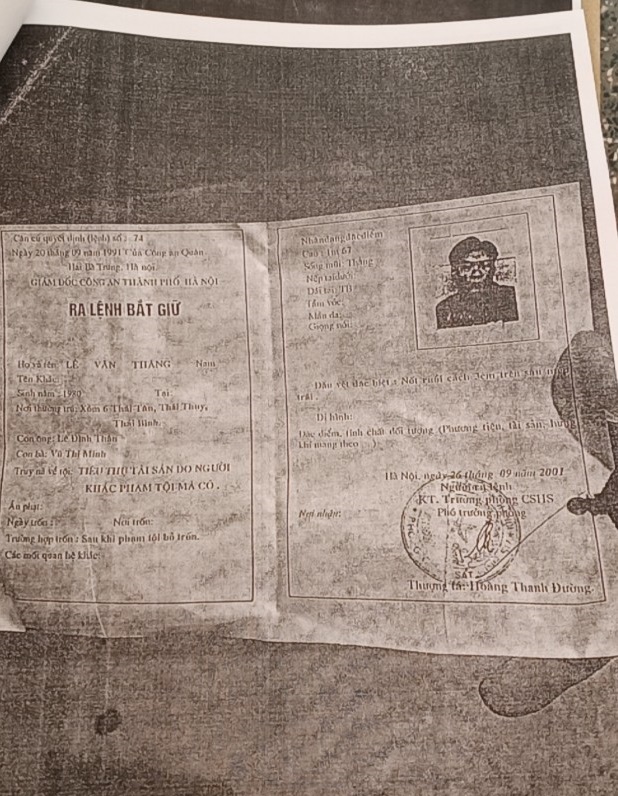 Căn cứ quyết định (lệnh) số : 74
Ngày 20 tháng 09 năm 1991 Của Công an Quận
Hai Bà Trưng, Hà nội
GIÁM ĐỐC CÔNG AN THÀNH PHỐ HÀ NỘI
RA LỆNH BẮT GIỮ
Họ và tên: LÊ VĂN THĂNG Nam
Tên Khác:
Sinh năm : 1980 Tại:
Nơi thường trú: Xóm 6 Thái Tân, Thái Thuỵ,
Thái Bình.
Con ông: Lê Đình Thân
Con bà: Vũ Thị Minh
Truy nã về tội: TIÊU THỤ TÀI SẢN DO NGƯỜI
KHÁC PHẠM TỘI MÀ CÓ .
Án phạt:
Ngày trốn : Nơi trốn:
Trường hợp trốn : Sau khi phạm tội bỏ trốn.
Các mối quan hệ khác:
Nhân dạng đặc điểm
Cao : 1m 67
Sống mũi: Thẳng
Nếp tai dưới:
Dái tai: TB
Tầm vóc:
Mầu da:
Giọng nói:
Dấu vết đặc biệt : Nốt ruồi cách 3cm trên sau mép
trái .
Dị hình:
Đặc điểm, tính chất đối tượng (Phương tiện, tài sản, hung
khí mang theo ...)
Hà Nội, ngày 26 tháng 09 năm 2001
Người ra lệnh
KT. Trưởng phòng CSHS
Nơi nhận: Phó trưởng phòng
SÁT
Thượng tá: Hoàng Thanh Đường.